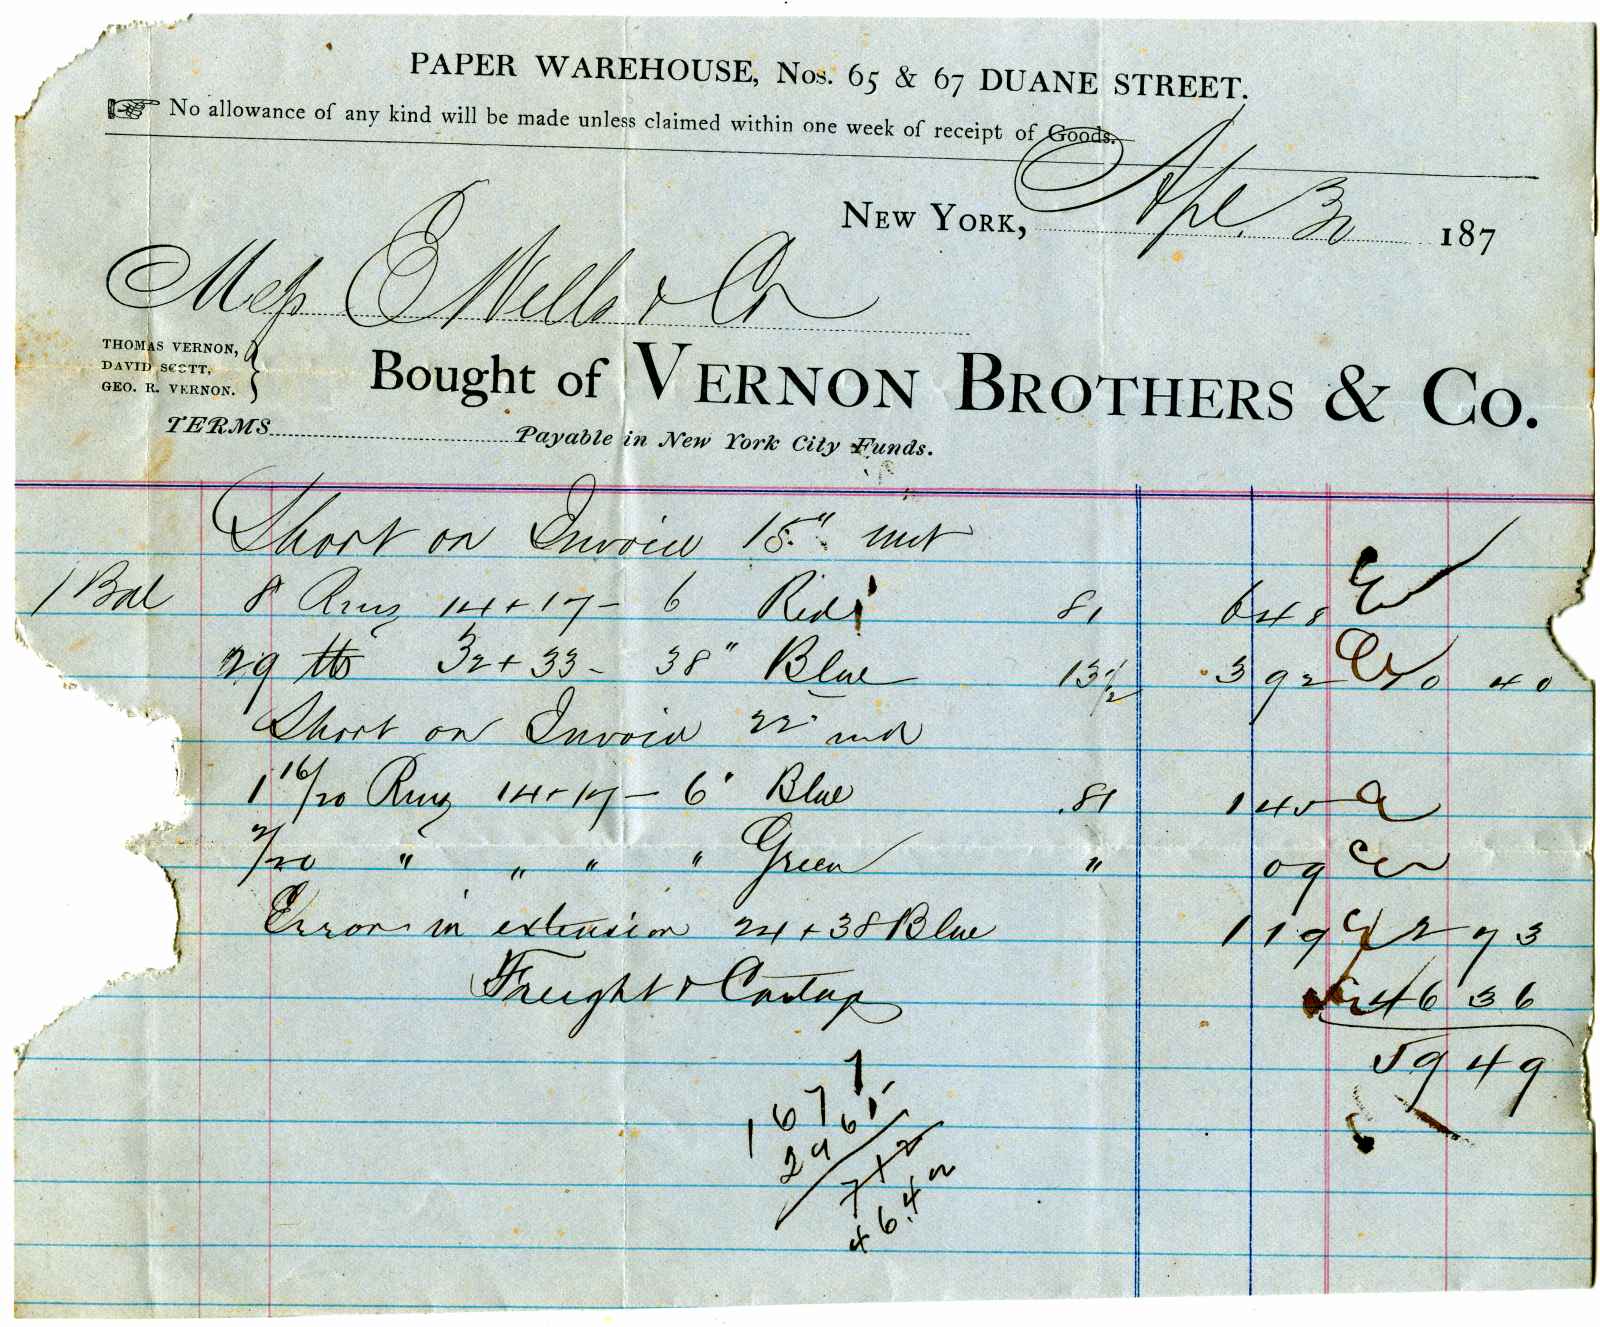 PAPER WAREHOUSE, Nos. 65 & 67 DUANE STREET.
No allowance of any kind will be made unless claimed within one week of receipt of Goods.
NEW YORK, Apl. 30 187
Mess E Wells & Co
THOMAS VERNON,
DAVID SCOTT,
GEO. R. VERNON.
Bought of VERNON BROTHERS & Co.
TERMS Payable in New York City Funds.
Short on Invoice 15" inst
1 Bdl 8 Rms 14 + 17 - 6 Red 81 6 48
29 lb 32 + 33 - 38" Blue 13½ 3 92 10 40
Short on Invoice 22"
1 16/20 Rms 14 + 17 - 6" Blue .81 1 45
2/20 " " " " Green " 09
Error in extension 24 + 38 Blue 1 19 2 73
Freight & Cartage 46 36
59 49